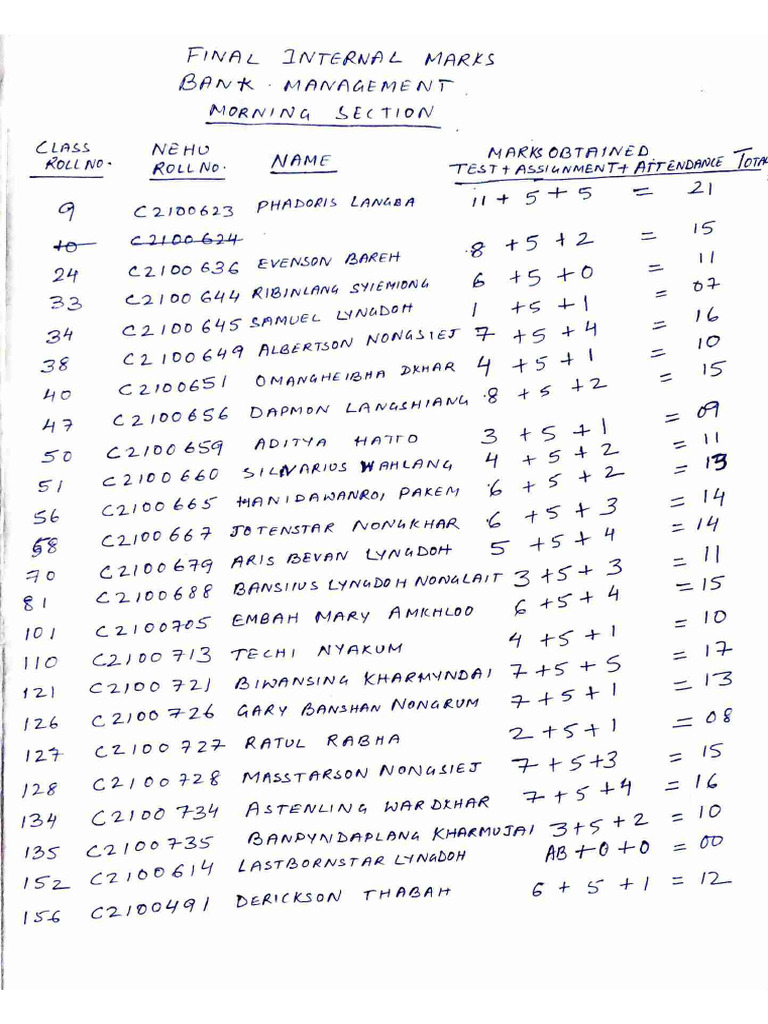 FINAL INTERNAL MARKS
BANK MANAGEMENT
MORNING SECTION
CLASS ROLL NO. NEHU ROLL NO. NAME MARKS OBTAINED TEST + ASSIGNMENT + ATTENDANCE TOTAL
9 C2100623 PHADORIS LANGBA 11 + 5 + 5 = 21
10 C2100624
24 C2100636 EVENSON BAREH 8 + 5 + 2 = 15
33 C2100644 RIBINLANG SYIEMIONG 6 + 5 + 0 = 11
34 C2100645 SAMUEL LYNGDOH 1 + 5 + 1 = 07
38 C2100649 ALBERTSON NONGSIEJ 7 + 5 + 4 = 16
40 C2100651 OMANGHEIBHA DKHAR 4 + 5 + 1 = 10
47 C2100656 DAPMON LANGSHIANG 8 + 5 + 2 = 15
50 C2100659 ADITYA HATTO 3 + 5 + 1 = 09
51 C2100660 SILVARIUS WAHLANG 4 + 5 + 2 = 11
56 C2100665 HANIDAWANROI PAKEM 6 + 5 + 2 = 13
58 C2100667 JOTENSTAR NONGKHAR 6 + 5 + 3 = 14
70 C2100679 ARIS BEVAN LYNGDOH 5 + 5 + 4 = 14
81 C2100688 BANSIIUS LYNGDOH NONGLAIT 3 + 5 + 3 = 11
101 C2100705 EMBAH MARY AMKHLOO 6 + 5 + 4 = 15
110 C2100713 TECHI NYAKUM 4 + 5 + 1 = 10
121 C2100721 BIWANSING KHARMYNDAI 7 + 5 + 5 = 17
126 C2100726 GARY BANSHAN NONGRUM 7 + 5 + 1 = 13
127 C2100727 RATUL RABHA 2 + 5 + 1 = 08
128 C2100728 MASSTARSON NONGSIEJ 7 + 5 + 3 = 15
134 C2100734 ASTENLING WARDKHAR 7 + 5 + 4 = 16
135 C2100735 BANPYNDAPLANG KHARMUJAI 3 + 5 + 2 = 10
152 C2100614 LASTBORNSTAR LYNGDOH AB + 0 + 0 = 00
156 C2100491 DERICKSON THABAH 6 + 5 + 1 = 12